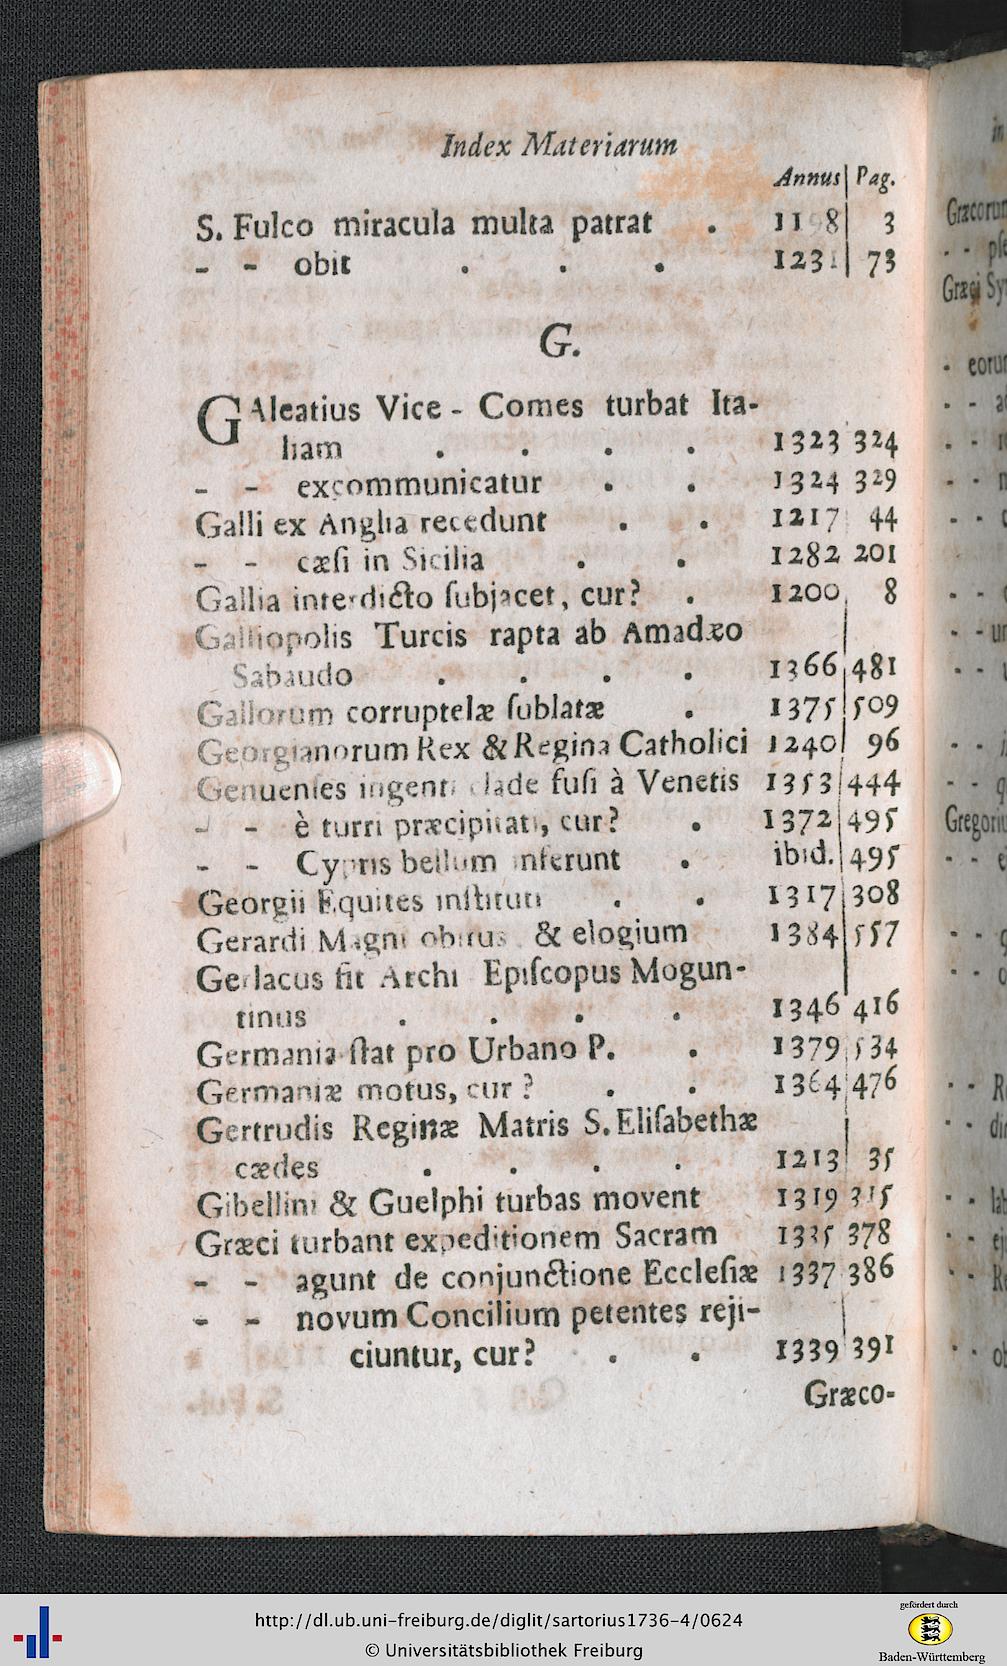 Index Materiarum
Annus Pag.
S. Fulco miracula multa patrat . 1198 3
- - obiit . . . 1231 73
G.
GAleatius Vice - Comes turbat Ita-
liam . . . . 1323 324
- - excommunicatur . . 1324 329
Galli ex Anglia recedunt . . 1217 44
- - cæsi in Sicilia . . 1282 201
Gallia interdicto ſubjacet, cur? . 1200 8
Galliopolis Turcis rapta ab Amadæo
Sabaudo . . . . 1366 481
Gallorum corruptelæ ſublatæ . 1375 509
Georgianorum Rex & Regina Catholici 1240 96
Genuenſes ingenti clade fuſi à Venetis 1353 444
- - è turri præcipitati, cur? . 1372 495
- - Cypris bellum inferunt . ibid. 495
Georgii Equites inſtituti . . 1317 308
Gerardi Magni obitus & elogium 1384 557
Gerlacus fit Archi Epiſcopus Mogun-
tinus . . . . 1346 416
Germania ſtat pro Urbano P. . 1379 534
Germaniæ motus, cur ? . . 1364 476
Gertrudis Reginæ Matris S. Eliſabethæ
cædes . . . . 1213 35
Gibellini & Guelphi turbas movent 1319 315
Græci turbant expeditionem Sacram 1335 378
- - agunt de conjunctione Eccleſiæ 1337 386
- - novum Concilium petentes reji-
ciuntur, cur? . . 1339 391
Græco-
Græcorum
Græci
Gregorius
http://dl.ub.uni-freiburg.de/diglit/sartorius1736-4/0624
© Universitätsbibliothek Freiburg
gefördert durch
Baden-Württemberg